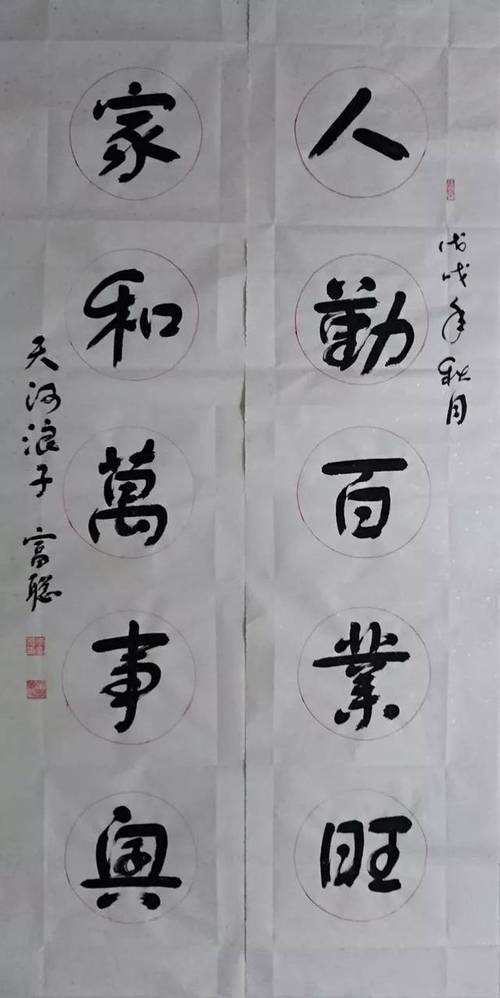 戊戌年秋月
人勤百業旺
家和萬事興
天河浪子 富聪